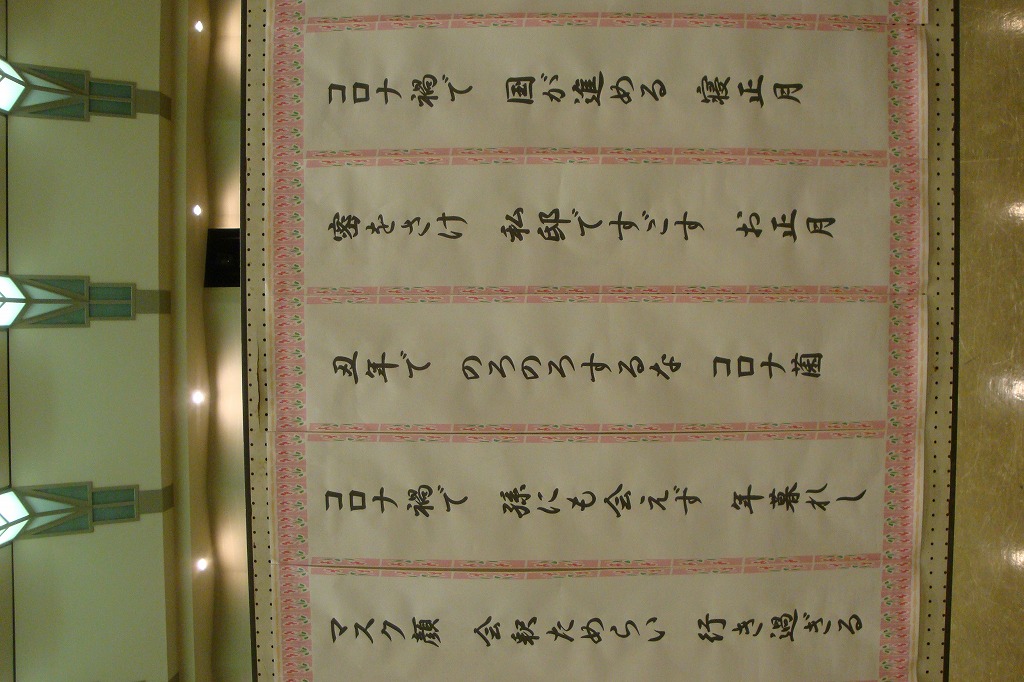 コロナ禍で 国が進める 寝正月
密をさけ 私邸ですごす お正月
丑年で のろのろするな コロナ菌
コロナ禍で 孫にも会えず 年暮れし
マスク顔 会釈ためらい 行き過ぎる